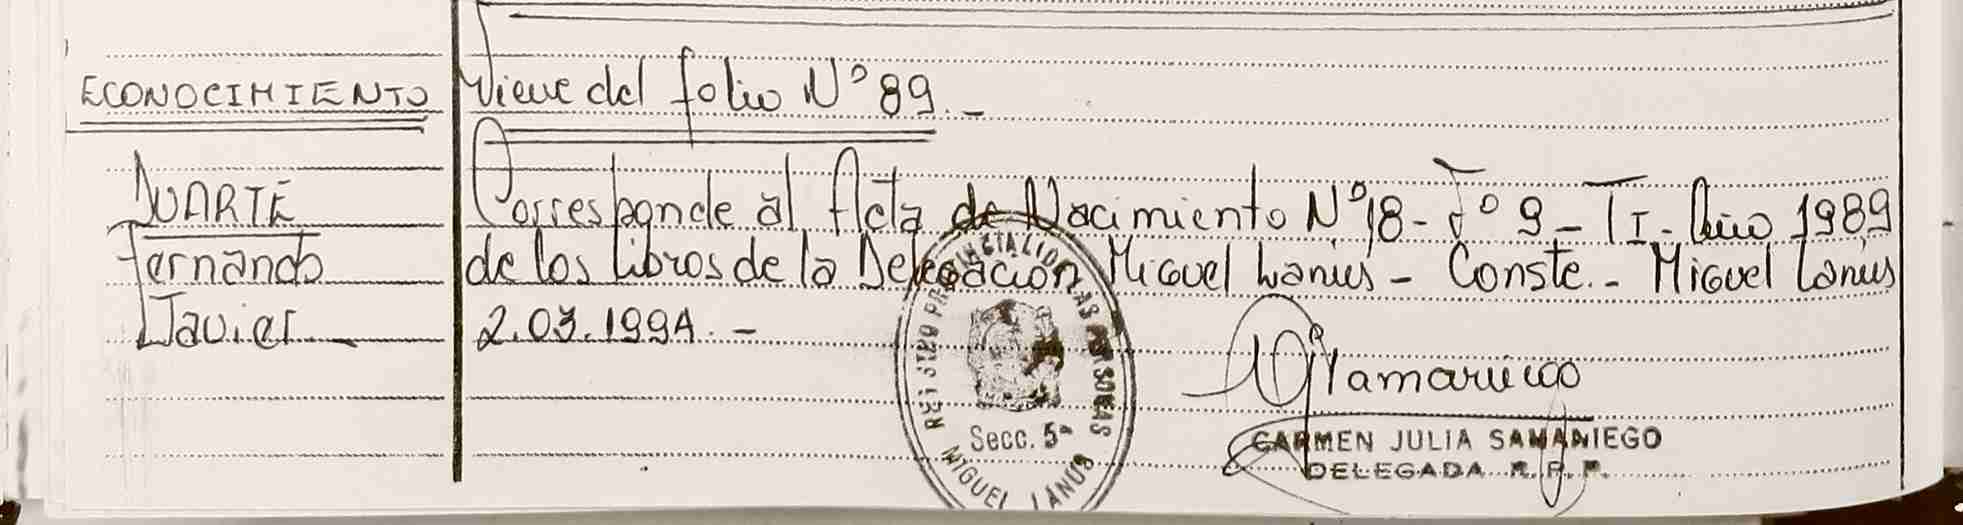 ECONOCIMIENTO
DUARTE
Fernando
Javier
Viene del folio N° 89.-
Corresponde al Acta de Nacimiento N° 18 - F° 9 - T I - Año 1989
de los libros de la Delegación Miguel Lanús - Conste.- Miguel Lanús
2.03.1994.-
REGISTRO PROVINCIAL DE LAS PERSONAS
Secc. 5ª
MIGUEL LANUS
CARMEN JULIA SAMANIEGO
DELEGADA R.P.P.